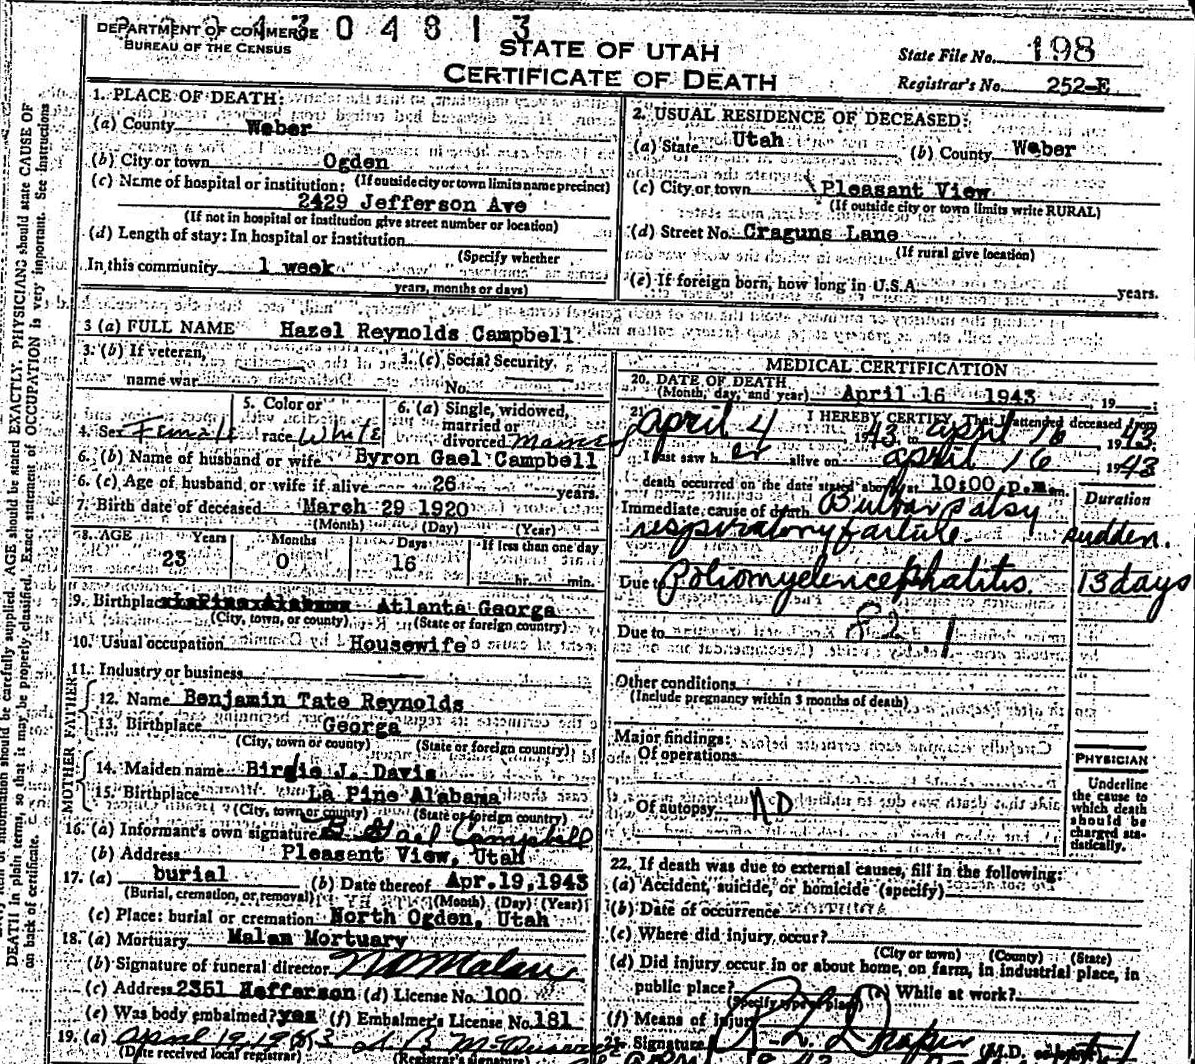 4 3 0 4 8 1 3
DEPARTMENT OF COMMERCE
BUREAU OF THE CENSUS
STATE OF UTAH
CERTIFICATE OF DEATH
State File No. 198
Registrar's No. 252-E
1. PLACE OF DEATH:
(a) County Weber
(b) City or town Ogden
(c) Name of hospital or institution: (If outside city or town limits name precinct)
2429 Jefferson Ave
(If not in hospital or institution give street number or location)
(d) Length of stay: In hospital or institution
(Specify whether
In this community 1 week
years, months or days)
2. USUAL RESIDENCE OF DECEASED:
(a) State Utah (b) County Weber
(c) City or town Pleasant View
(If outside city or town limits write RURAL)
(d) Street No. Craguns Lane
(If rural give location)
(e) If foreign born, how long in U.S.A. years.
3 (a) FULL NAME Hazel Reynolds Campbell
3. (b) If veteran, 3. (c) Social Security
name war No.
4. Sex Female 5. Color or race White 6. (a) Single, widowed, married or divorced
6. (b) Name of husband or wife Byron Gael Campbell
6. (c) Age of husband or wife if alive 26 years.
7. Birth date of deceased March 29 1920
(Month) (Day) (Year)
8. AGE Years Months Days If less than one day
23 0 16 hr. min.
9. Birthplace LaPine Alabama Atlanta Georga
(City, town, or county) (State or foreign country)
10. Usual occupation Housewife
11. Industry or business
FATHER
12. Name Benjamin Tate Reynolds
13. Birthplace Georga
(City, town or county) (State or foreign country)
MOTHER
14. Maiden name Birdie J. Davis
15. Birthplace La Pine Alabama
(City, town or county) (State or foreign country)
16. (a) Informant's own signature B Gael Campbell
(b) Address Pleasant View, Utah
17. (a) burial (b) Date thereof Apr. 19, 1943
(Burial, cremation, or removal) (Month) (Day) (Year)
(c) Place: burial or cremation North Ogden, Utah
18. (a) Mortuary Malan Mortuary
(b) Signature of funeral director Malan
(c) Address 2351 Jefferson (d) License No. 100
(e) Was body embalmed? yes (f) Embalmer's License No. 181
19. (a) April 19, 1943
(Date received local registrar) (Registrar's signature)
MEDICAL CERTIFICATION
20. DATE OF DEATH
(Month, day, and year) April 16 1943 19
21. I HEREBY CERTIFY, That I attended deceased from
April 4 1943 to April 16 1943
I last saw her alive on April 16 1943
death occurred on the date stated above at 10:00 p.m. m.
Duration
Immediate cause of death Bulbar Palsy
respiratory failure. sudden.
Due to Poliomyelencephalitis. 13 days
Due to
Other conditions
(Include pregnancy within 3 months of death)
Major findings:
Of operations
Of autopsy NO
PHYSICIAN
Underline
the cause to
which death
should be
charged sta-
tistically.
22. If death was due to external causes, fill in the following:
(a) Accident, suicide, or homicide (specify)
(b) Date of occurrence
(c) Where did injury occur?
(City or town) (County) (State)
(d) Did injury occur in or about home, on farm, in industrial place, in
public place? (Specify type of place) (e) While at work?
(f) Means of injury
Signature R. L. Draper (M.D.
DEATH in plain terms, so that it may be properly classified. Exact statement of OCCUPATION is very important. See instructions
on back of certificate.
information should be carefully supplied. AGE should be stated EXACTLY. PHYSICIANS should state CAUSE OF